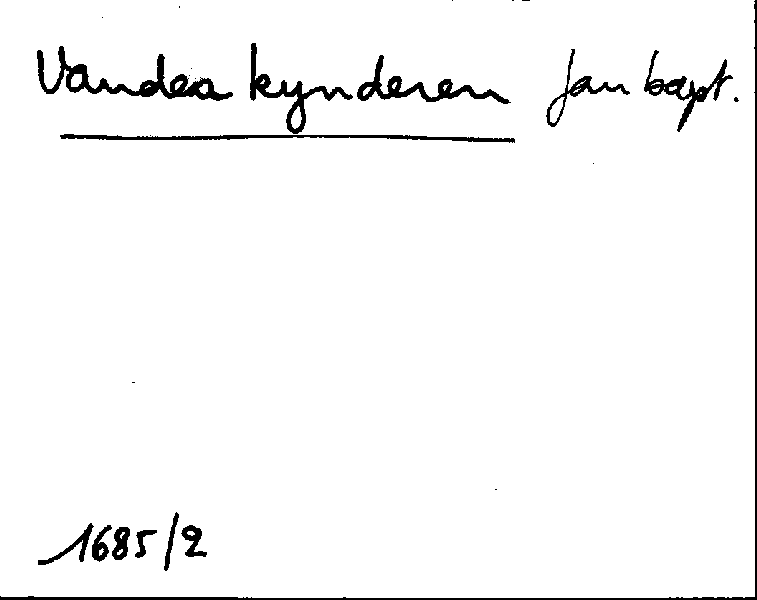 Vanden kynderen Jan bapt.
1685/2